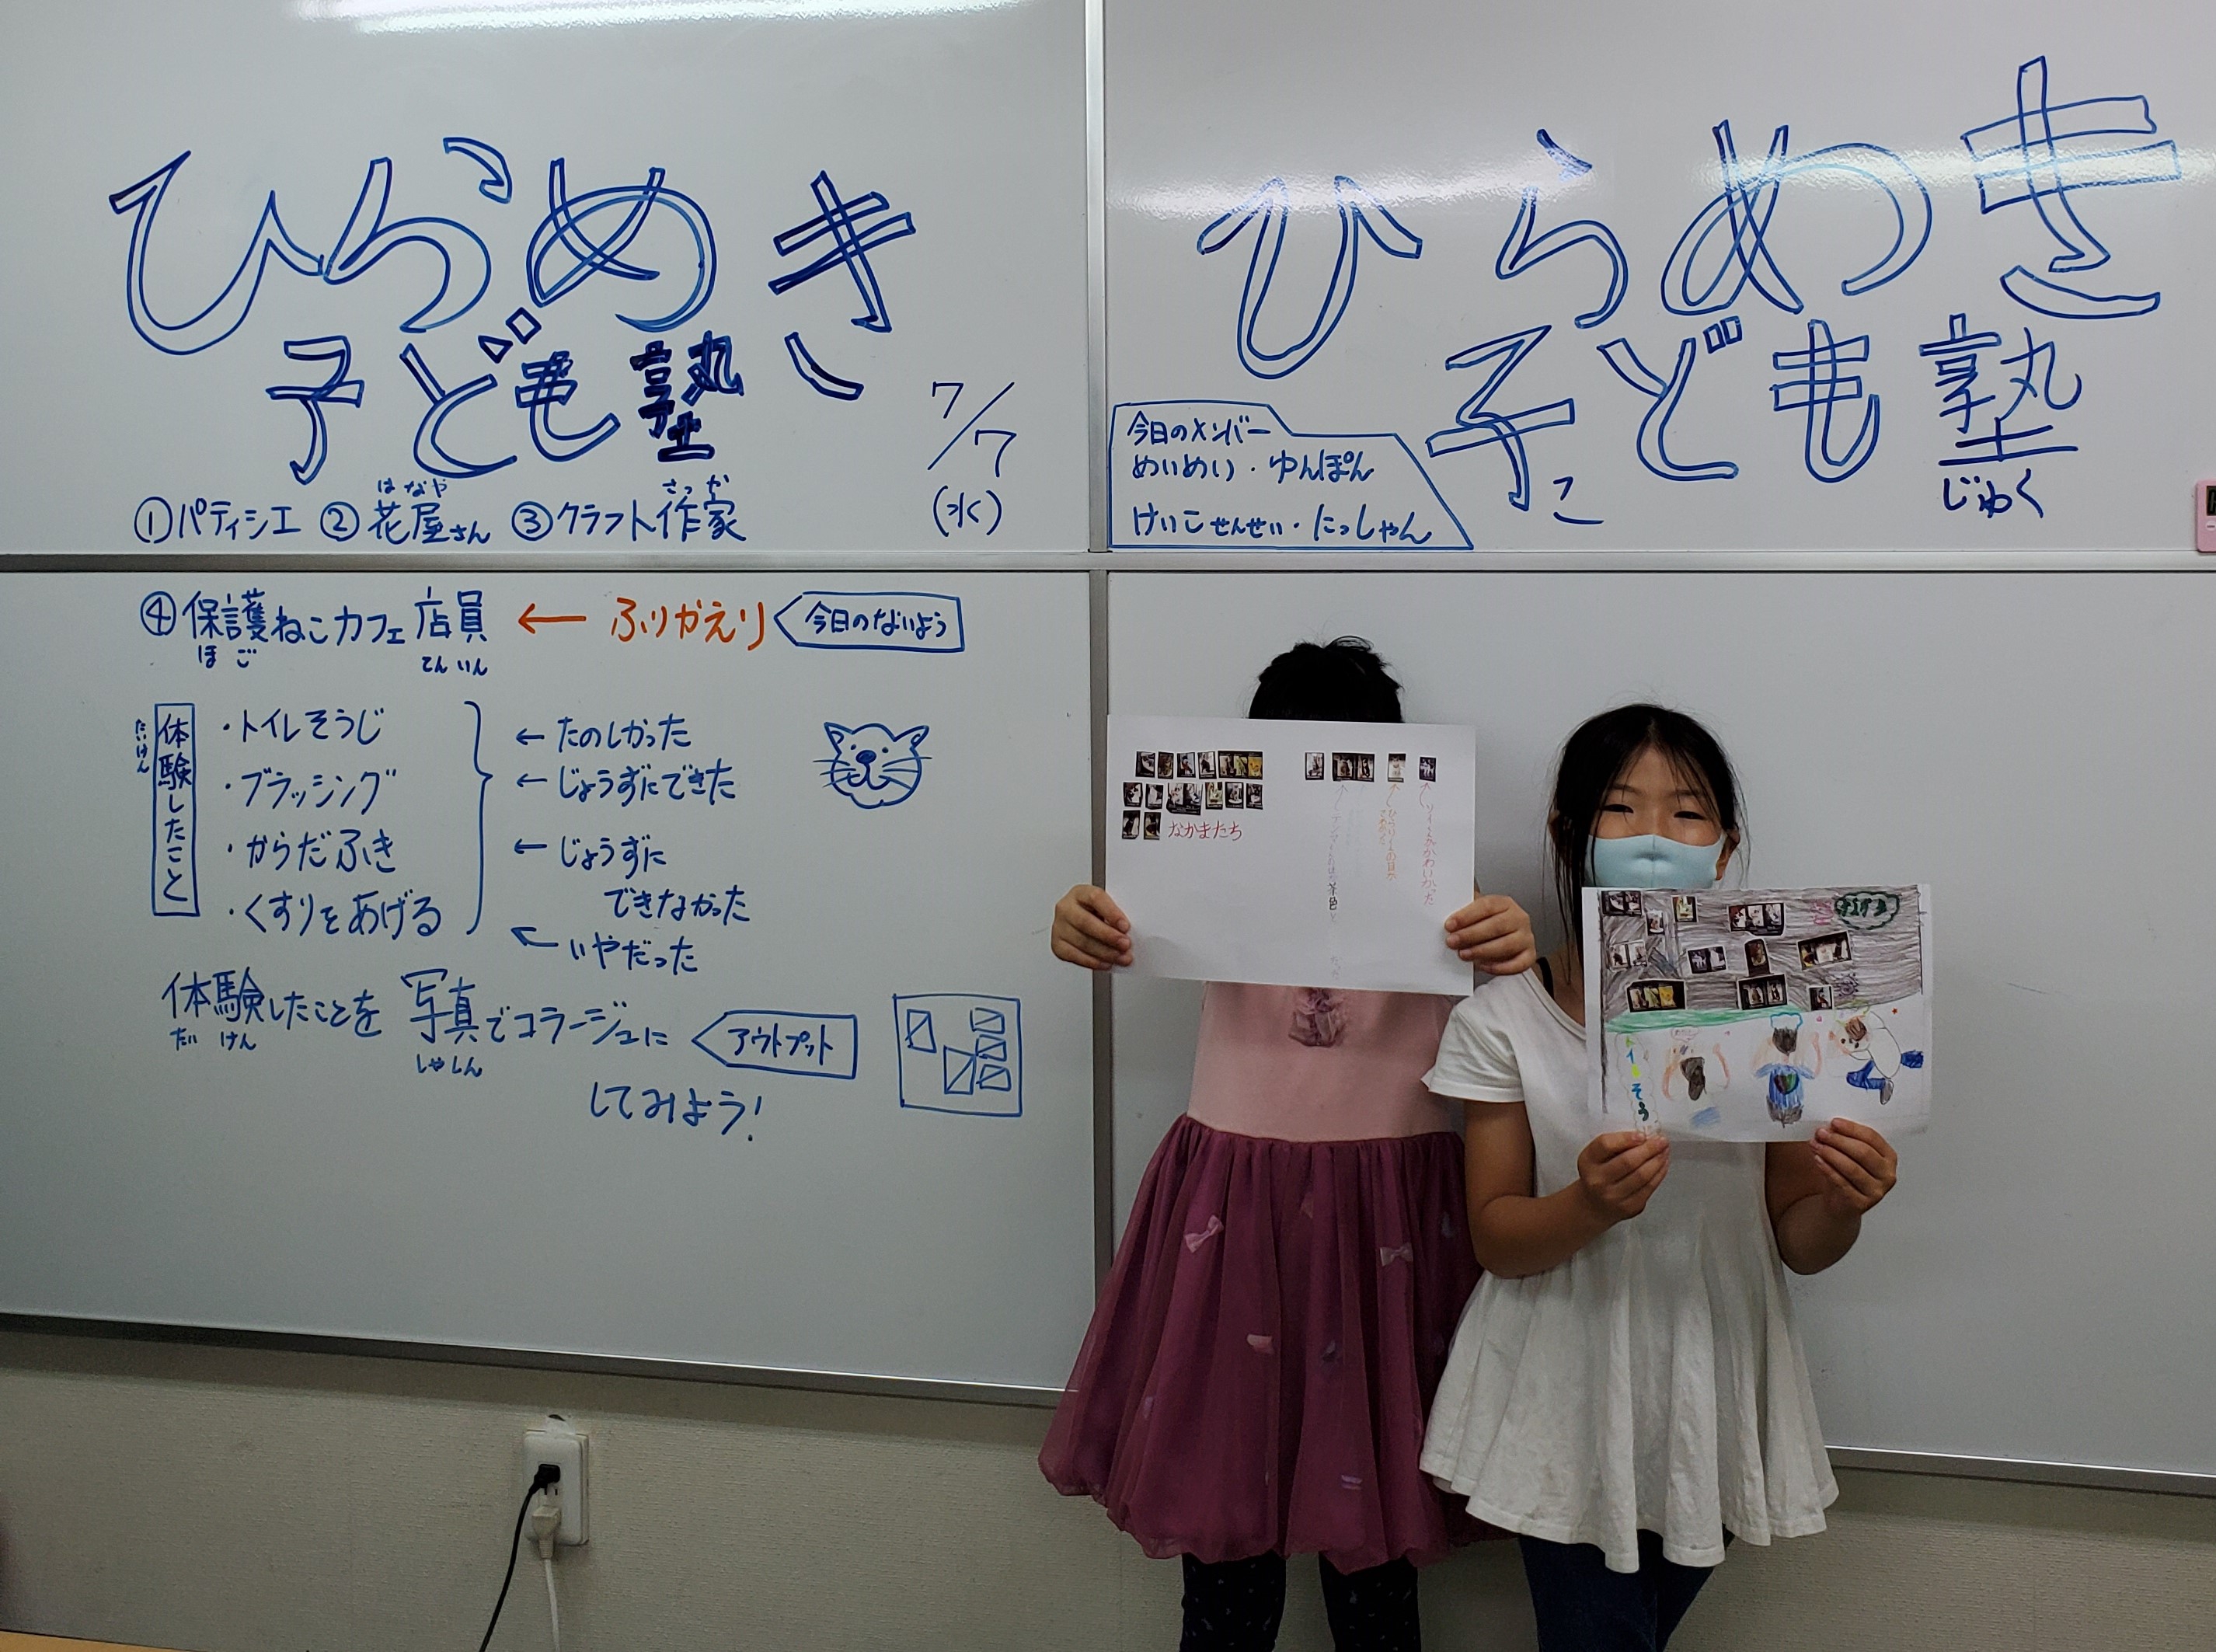 ひらめき
子ども塾
7/7
(水)
はなや
さっか
①パティシエ ②花屋さん ③クラフト作家
④保護ねこカフェ店員 ← ふりかえり 今日のないよう
ほご
てんいん
たいけん
体験したこと
・トイレそうじ
・ブラッシング
・からだふき
・くすりをあげる
← たのしかった
← じょうずにできた
← じょうずに
できなかった
← いやだった
体験したことを写真でコラージュに アウトプット
たい けん
しゃしん
してみよう!
ひらめき
子ども塾
こ
じゅく
今日のメンバー
めいめい・ゆんぽん
けいこせんせい・たっしゃん
なかまたち
トイレそう